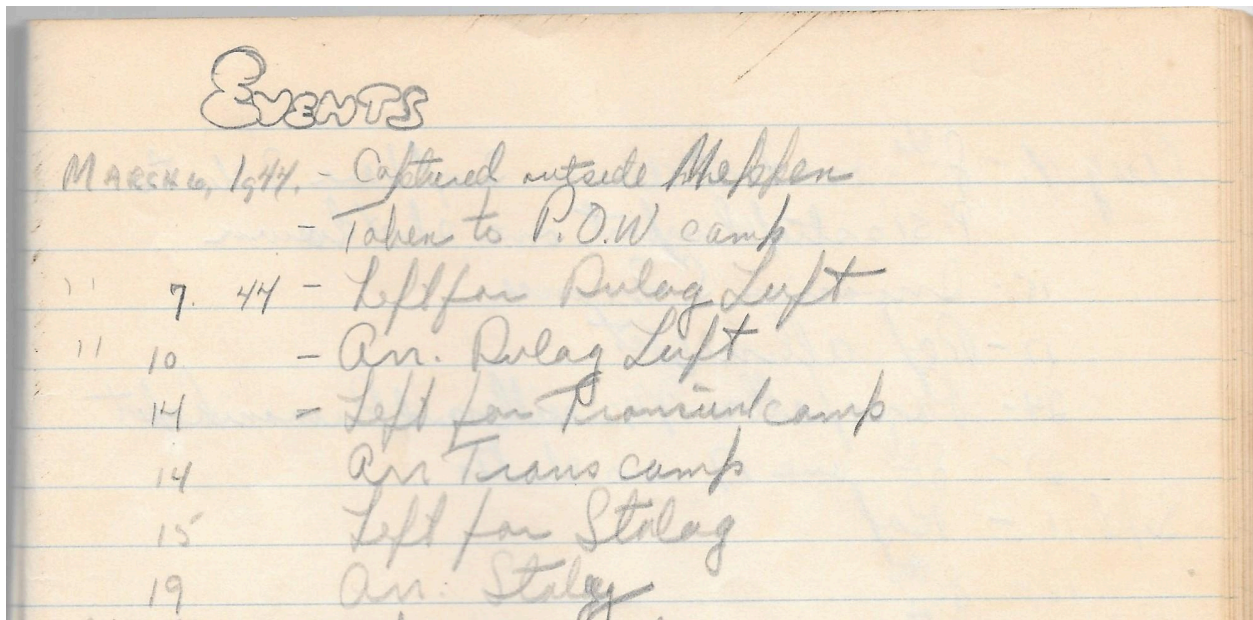 EVENTS
MARCH 6, 1944. - Captured outside Meppen
- Taken to P.O.W camp
" 7. 44 - Left for Dulag Luft
" 10 - Arr. Dulag Luft
14 - Left for Transient camp
14 Arr Trans camp
15 Left for Stalag
19 Arr. Stalag